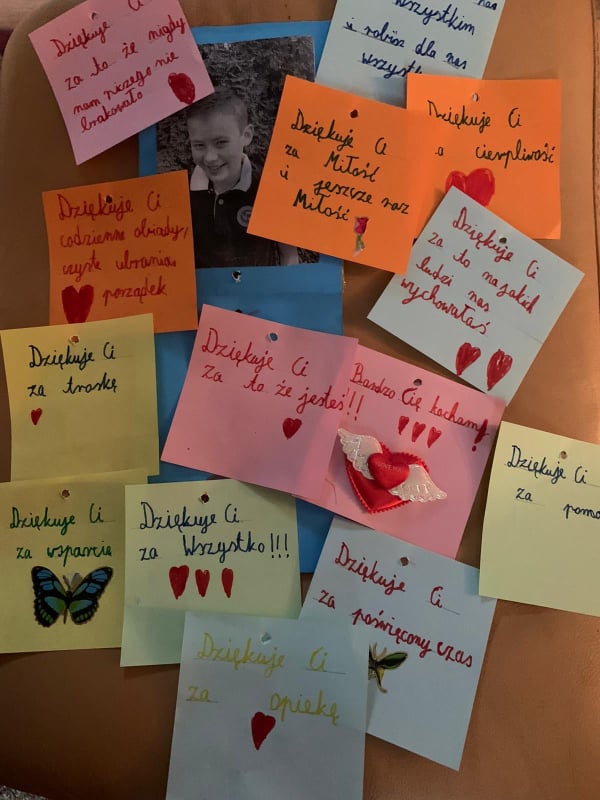 Dziękuje Ci
za to że nigdy
nam niczego nie
brakowało
nas
wszystkim
i robisz dla nas
wszystko
Dziękuje Ci
za Miłość
i jeszcze raz
Miłość
Dziękuje Ci
cierpliwość
Dziękuje Ci
codzienne obiady,
czyste ubrania,
porządek
Dziękuje Ci
za to na jakich
ludzi nas
wychowałaś
Dziękuje Ci
za troskę
Dziękuje Ci
za to, że jesteś!!!
Bardzo Cię kocham!
Dziękuje Ci
za
Dziękuje Ci
za wsparcie
Dziękuje Ci
za Wszystko!!!
Dziękuje Ci
za poświęcony czas
Dziękuje Ci
za opiekę